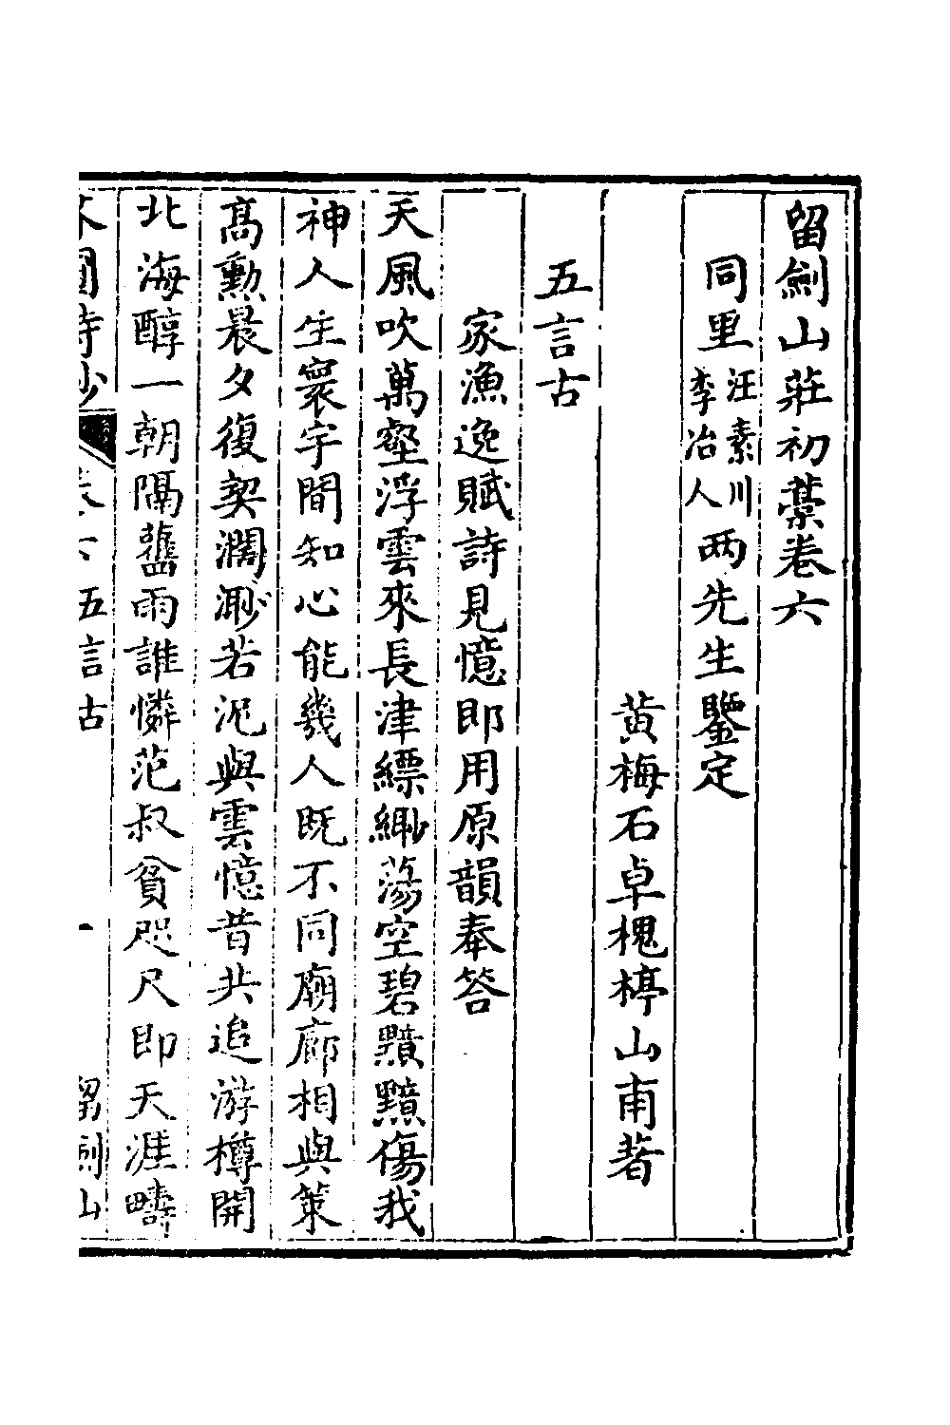 留劍山莊初藁卷六
同里汪素川李冶人两先生鑒定
黄梅石卓槐椁山甫著
五言古
家漁逸賦詩見憶即用原韻奉答
天風吹萬壑浮雲來長津縹緲蕩空碧黯黯傷我
神人生寰宇間知心能幾人既不同廟廊相與策
高勲晨夕復契濶渺若泥與雲憶昔共追游樽開
北海醇一朝隔舊雨誰憐范叔貧咫尺即天涯疇
五言古 一 留劍山